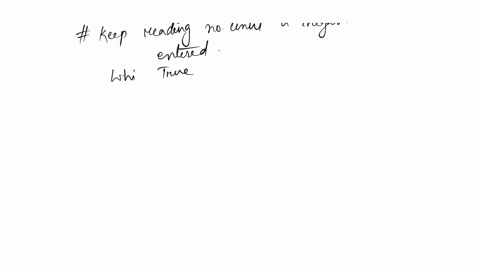 # Keep reading no.
entered.
Whi True